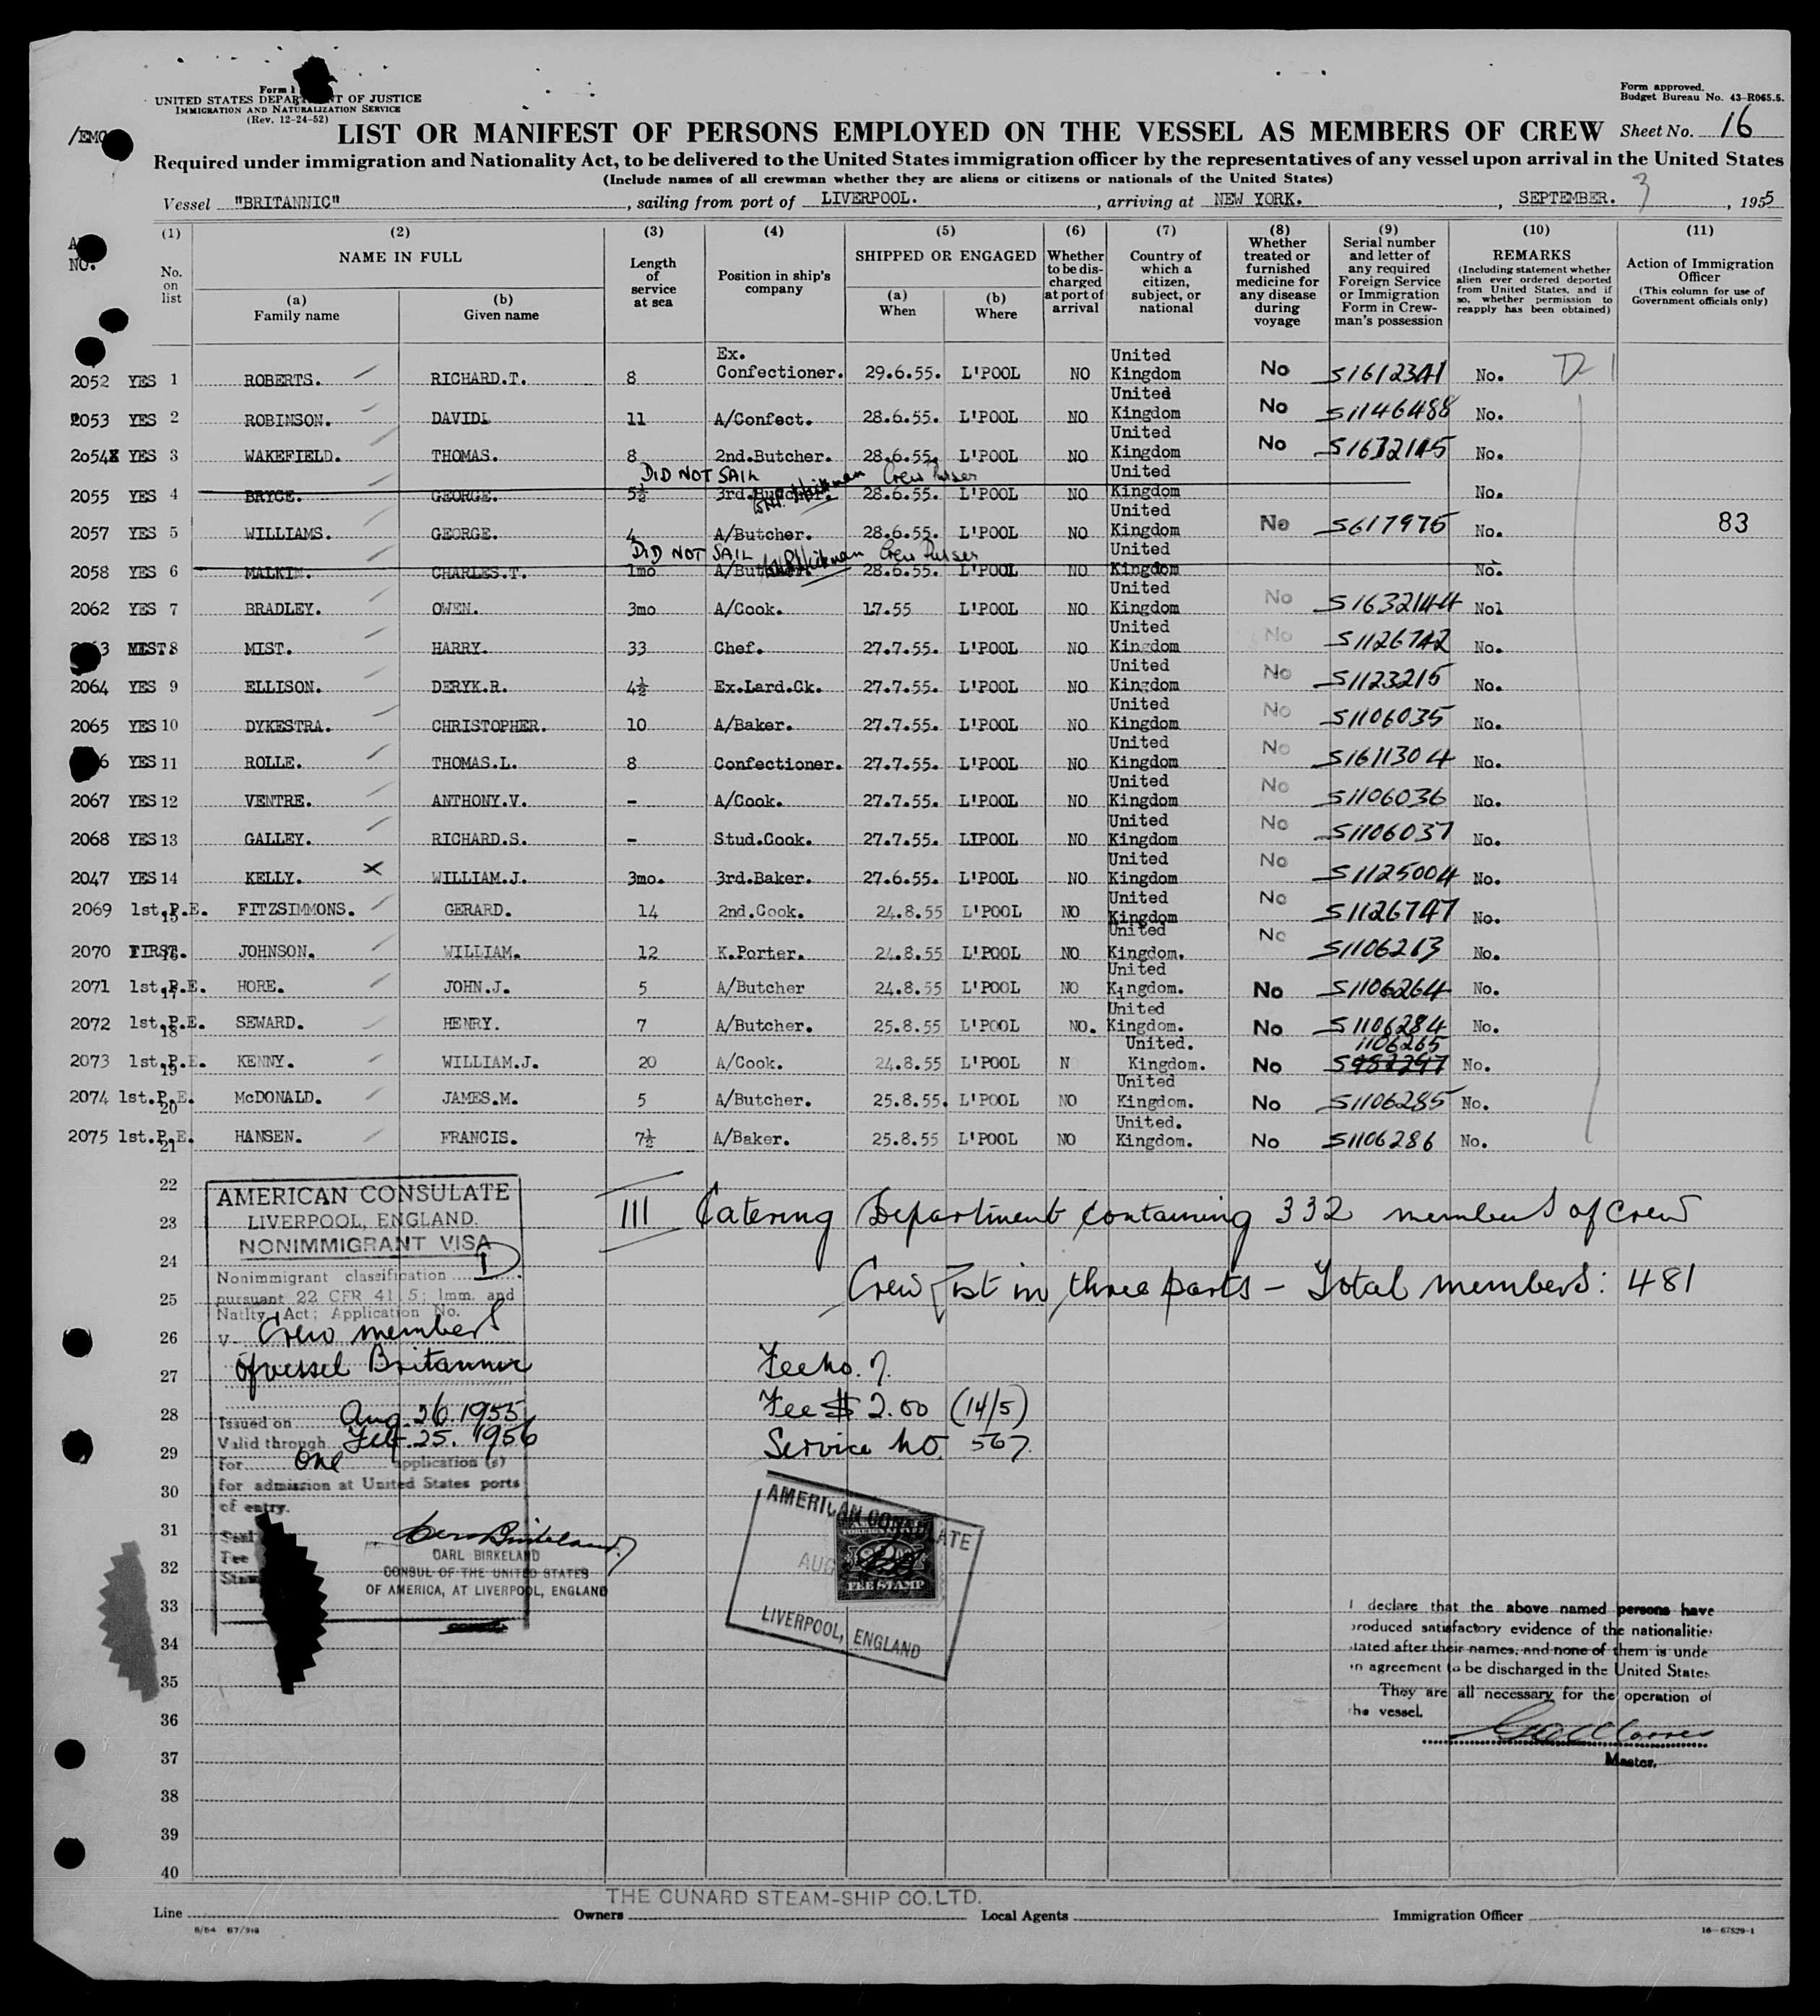 Form I
UNITED STATES DEPARTMENT OF JUSTICE
IMMIGRATION AND NATURALIZATION SERVICE
(Rev. 12-24-52)
Form approved.
Budget Bureau No. 43-R065.5.
/EMC
LIST OR MANIFEST OF PERSONS EMPLOYED ON THE VESSEL AS MEMBERS OF CREW Sheet No. 16
Required under immigration and Nationality Act, to be delivered to the United States immigration officer by the representatives of any vessel upon arrival in the United States
(Include names of all crewman whether they are aliens or citizens or nationals of the United States)
Vessel "BRITANNIC", sailing from port of LIVERPOOL., arriving at NEW YORK., SEPTEMBER. 3, 1955
(1) (2) (3) (4) (5) (6) (7) (8) (9) (10) (11)
NO.
No. on list
NAME IN FULL
(a) Family name
(b) Given name
Length of service at sea
Position in ship's company
SHIPPED OR ENGAGED
(a) When
(b) Where
Whether to be discharged at port of arrival
Country of which a citizen, subject, or national
Whether treated or furnished medicine for any disease during voyage
Serial number and letter of any required Foreign Service or Immigration Form in Crewman's possession
REMARKS
(Including statement whether alien ever ordered deported from United States, and if so, whether permission to reapply has been obtained)
Action of Immigration Officer
(This column for use of Government officials only)
2052 YES 1 ROBERTS. RICHARD.T. 8 Ex. Confectioner. 29.6.55. L'POOL NO United Kingdom No S1612341 No. D
2053 YES 2 ROBINSON. DAVIDL 11 A/Confect. 28.6.55. L'POOL NO United Kingdom No S1146488 No.
2054X YES 3 WAKEFIELD. THOMAS. 8 2nd.Butcher. 28.6.55. L'POOL NO United Kingdom No S1632145 No.
DID NOT SAIL Hickman Crew Purser
2055 YES 4 BRYCE. GEORGE. 5½ 3rd.Butcher. 28.6.55. L'POOL NO United Kingdom No.
2057 YES 5 WILLIAMS. GEORGE. 4 A/Butcher. 28.6.55. L'POOL NO United Kingdom No S617975 No. 83
DID NOT SAIL Hickman Crew Purser
2058 YES 6 MALKIN. CHARLES.T. 1mo A/Butcher. 28.6.55. L'POOL NO United Kingdom No.
2062 YES 7 BRADLEY. OWEN. 3mo A/Cook. 17.55 L'POOL NO United Kingdom No S1632144 Nol
3 8 MIST. HARRY. 33 Chef. 27.7.55. L'POOL NO United Kingdom No S1126742 No.
2064 YES 9 ELLISON. DERYK.R. 4½ Ex.Lard.Ck. 27.7.55. L'POOL NO United Kingdom No S1123215 No.
2065 YES 10 DYKESTRA. CHRISTOPHER. 10 A/Baker. 27.7.55. L'POOL NO United Kingdom No S1106035 No.
6 YES 11 ROLLE. THOMAS.L. 8 Confectioner. 27.7.55. L'POOL NO United Kingdom No S1611304 No.
2067 YES 12 VENTRE. ANTHONY.V. - A/Cook. 27.7.55. L'POOL NO United Kingdom No S1106036 No.
2068 YES 13 GALLEY. RICHARD.S. - Stud.Cook. 27.7.55. LIPOOL NO United Kingdom No S1106037 No.
2047 YES 14 KELLY. X WILLIAM.J. 3mo. 3rd.Baker. 27.6.55. L'POOL NO United Kingdom No S1125004 No.
2069 1st.P.E. 15 FITZSIMMONS. GERARD. 14 2nd.Cook. 24.8.55 L'POOL NO United Kingdom No S1126747 No.
2070 FIRST. 16 JOHNSON. WILLIAM. 12 K.Porter. 24.8.55 L'POOL NO United Kingdom. No S1106263 No.
2071 1st.P.E. 17 HORE. JOHN.J. 5 A/Butcher 24.8.55 L'POOL NO United Kingdom. No S1106264 No.
2072 1st.P.E. 18 SEWARD. HENRY. 7 A/Butcher. 25.8.55 L'POOL NO. United Kingdom. No S1106284 No.
2073 1st.P.E. 19 KENNY. WILLIAM.J. 20 A/Cook. 24.8.55 L'POOL N United. Kingdom. No S 1106265 No.
2074 1st.P.E. 20 McDONALD. JAMES.M. 5 A/Butcher. 25.8.55. L'POOL NO United Kingdom. No S1106285 No.
2075 1st.P.E. 21 HANSEN. FRANCIS. 7½ A/Baker. 25.8.55 L'POOL NO United. Kingdom. No S1106286 No.
22
23
24
25
26
27
28
29
30
31
32
33
34
35
36
37
38
39
40
AMERICAN CONSULATE
LIVERPOOL, ENGLAND.
NONIMMIGRANT VISA
Nonimmigrant classification D
pursuant 22 CFR 41.5; Imm. and
Natlty. Act; Application No.
V- Crew members
of vessel Britannic
Issued on Aug. 26. 1955
Valid through Feb. 25. 1956
for one application (s)
for admission at United States ports
of entry.
Seal
Fee
Stamp
CARL BIRKELAND
CONSUL OF THE UNITED STATES
OF AMERICA, AT LIVERPOOL, ENGLAND
III Catering Department containing 332 members of crew
Crew List in three parts - Total members: 481
Fee No. 7.
Fee $ 2.00 (14/5)
Service No. 567.
AMERICAN CONSULATE
AUG
FEE STAMP
LIVERPOOL, ENGLAND
I declare that the above named persons have
produced satisfactory evidence of the nationalities
stated after their names, and none of them is unde
an agreement to be discharged in the United States
They are all necessary for the operation of
the vessel.
Master.
THE CUNARD STEAM-SHIP CO.LTD.
Line Owners Local Agents Immigration Officer
5/54 67/918
16-67529-1